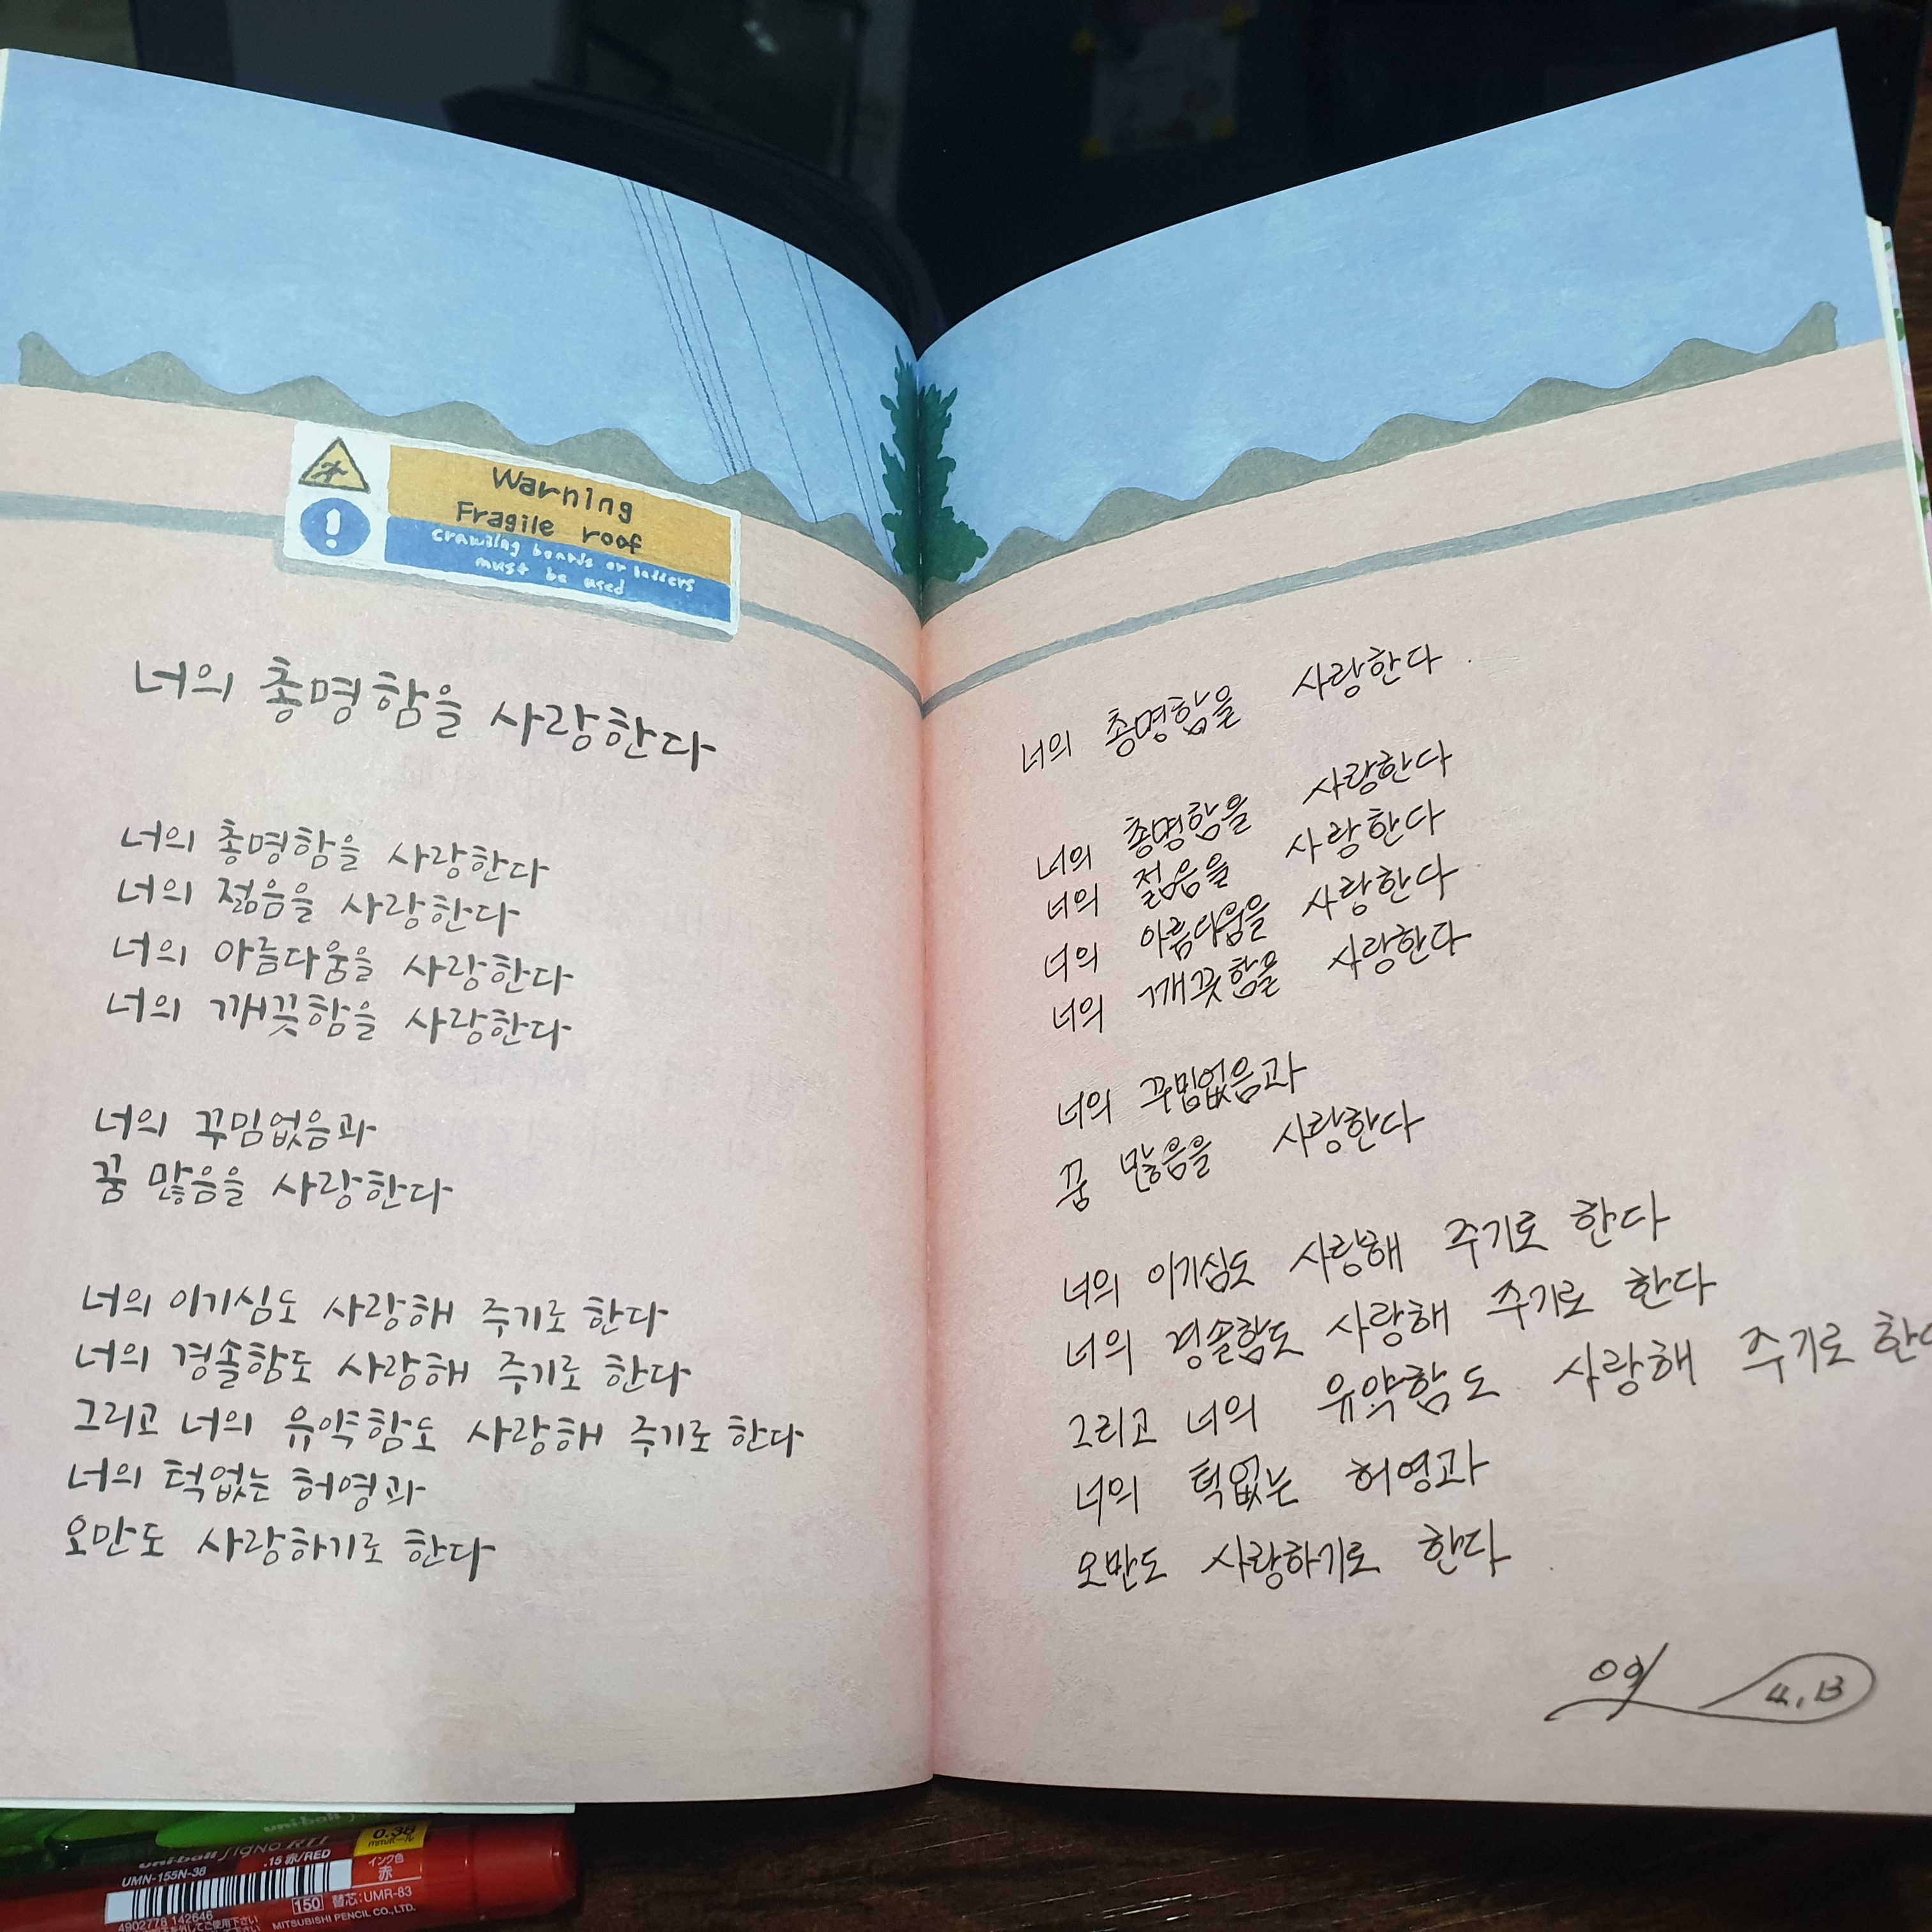 Warning
Fragile roof
crawling boards or ladders
must be used
너의 총명함을 사랑한다
너의 총명함을 사랑한다
너의 젊음을 사랑한다
너의 아름다움을 사랑한다
너의 깨끗함을 사랑한다
너의 꾸밈없음과
꿈 많음을 사랑한다
너의 이기심도 사랑해 주기로 한다
너의 경솔함도 사랑해 주기로 한다
그리고 너의 유약함도 사랑해 주기로 한다
너의 턱없는 허영과
오만도 사랑하기로 한다
너의 총명함을 사랑한다.
너의 총명함을 사랑한다
너의 젊음을 사랑한다
너의 아름다움을 사랑한다
너의 깨끗함을 사랑한다
너의 꾸밈없음과
꿈 많음을 사랑한다
너의 이기심도 사랑해 주기로 한다
너의 경솔함도 사랑해 주기로 한다
그리고 너의 유약함도 사랑해 주기로 한
너의 턱없는 허영과
오만도 사랑하기로 한다.
4.13
uni-ball
uni-ball SigNo RT1
UMN-155N-38 .15 赤/RED
0.38
mmボール
インク色
赤
150 替芯:UMR-83
4902778 142646
MITSUBISHI PENCIL CO., LTD.